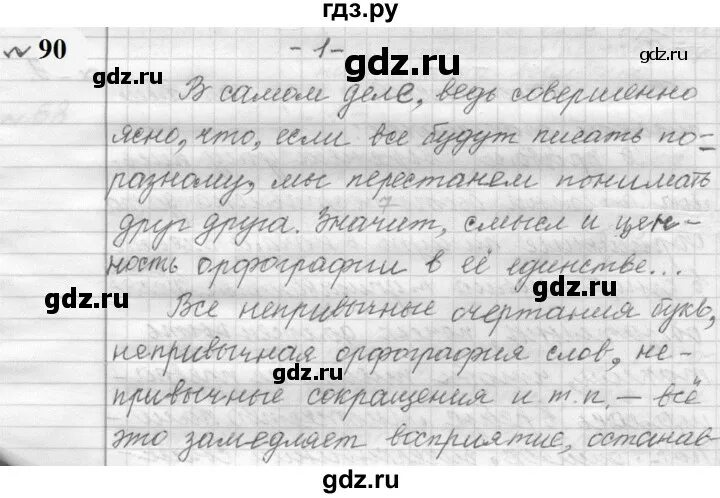 гдз.ру
№ 90
- 1 -
gdz.ru
gdz.ru
В самом деле, ведь совершенно
ясно, что, если все будут писать по-
разному, мы перестанем понимать
друг друга. Значит, смысл и цен-
ность орфографии в её единстве...
gdz.ru
gdz.ru
Все непривычные очертания букв,
непривычная орфография слов, не-
gdz.ru
привычные сокращения и т.п. – всё
gdz.ru
это замедляет восприятие, останав-
gdz.ru